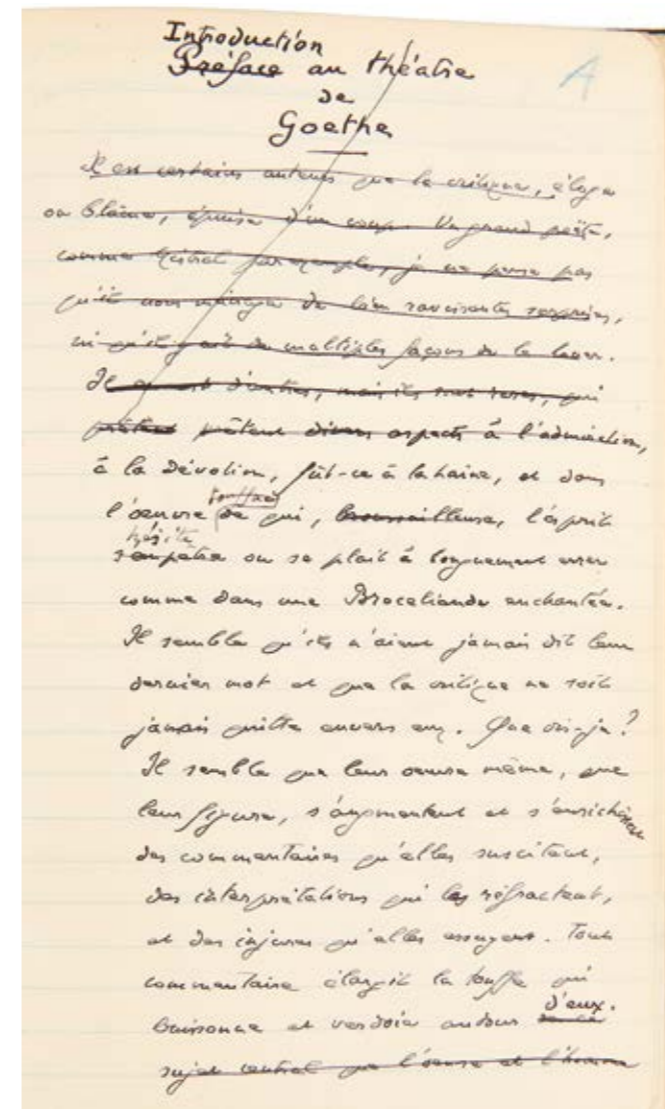 Introduction
Préface au théatre
de
Goethe
A
Il est certains auteurs que la critique, éloge
ou blâme, épuise d'un coup. Un grand poëte,
comme Mistral par exemple, je ne pense pas
qu'il nous ménage de bien ravissantes surprises,
ni qu'il y ait de multiples façons de le louer.
Il en est d'autres, mais ils sont rares, qui
prêtent prêtent divers aspects à l'admiration,
à la dévotion, fût-ce à la haine, et dans
touffue
l'œuvre de qui, broussailleuse, l'esprit
hésite
s'empêtre ou se plait à longuement errer
comme dans une Broceliande enchantée.
Il semble qu'ils n'aient jamais dit leur
dernier mot et que la critique ne soit
jamais quitte envers eux. Que dis-je?
Il semble que leur œuvre même, que
leur figure, s'augmentent et s'enrichissent
des commentaires qu'elles suscitent,
des interprétations qui les réfractent,
et des injures qu'elles essuyent. Tout
commentaire élargit la touffe qui
d'eux.
buissonne et verdoie autour de ce
sujet central que l'œuvre et l'homme